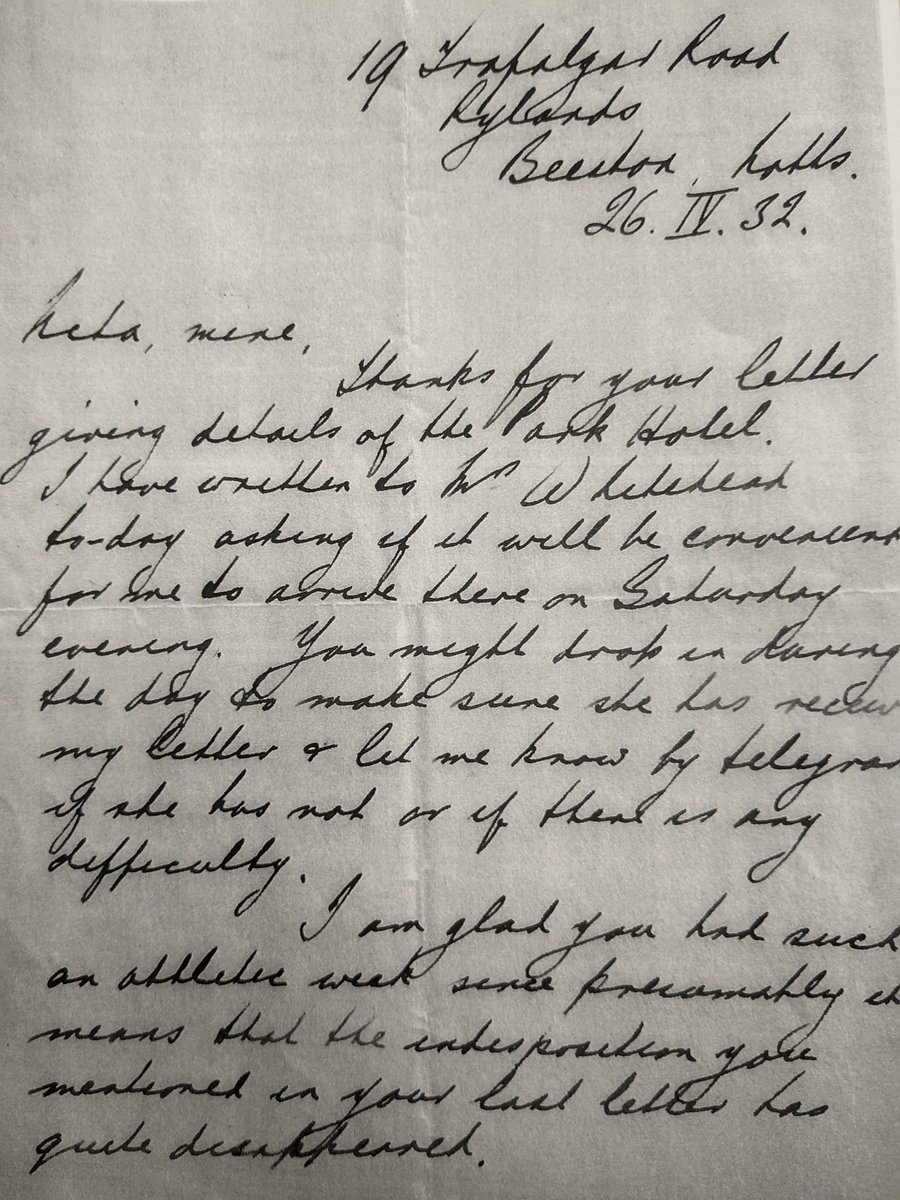 19 Trafalgar Road
Rylands
Beeston, Notts.
26. IV. 32.
Neta, mine,
Thanks for your letter
giving details of the Park Hotel.
I have written to Mrs Whitehead
to-day asking if it will be convenient
for me to arrive there on Saturday
evening. You might drop in during
the day to make sure she has receiv
my letter & let me know by telegram
if she has not or if there is any
difficulty.
I am glad you had such
an athletic week since presumably it
means that the indisposition you
mentioned in your last letter has
quite disappeared.